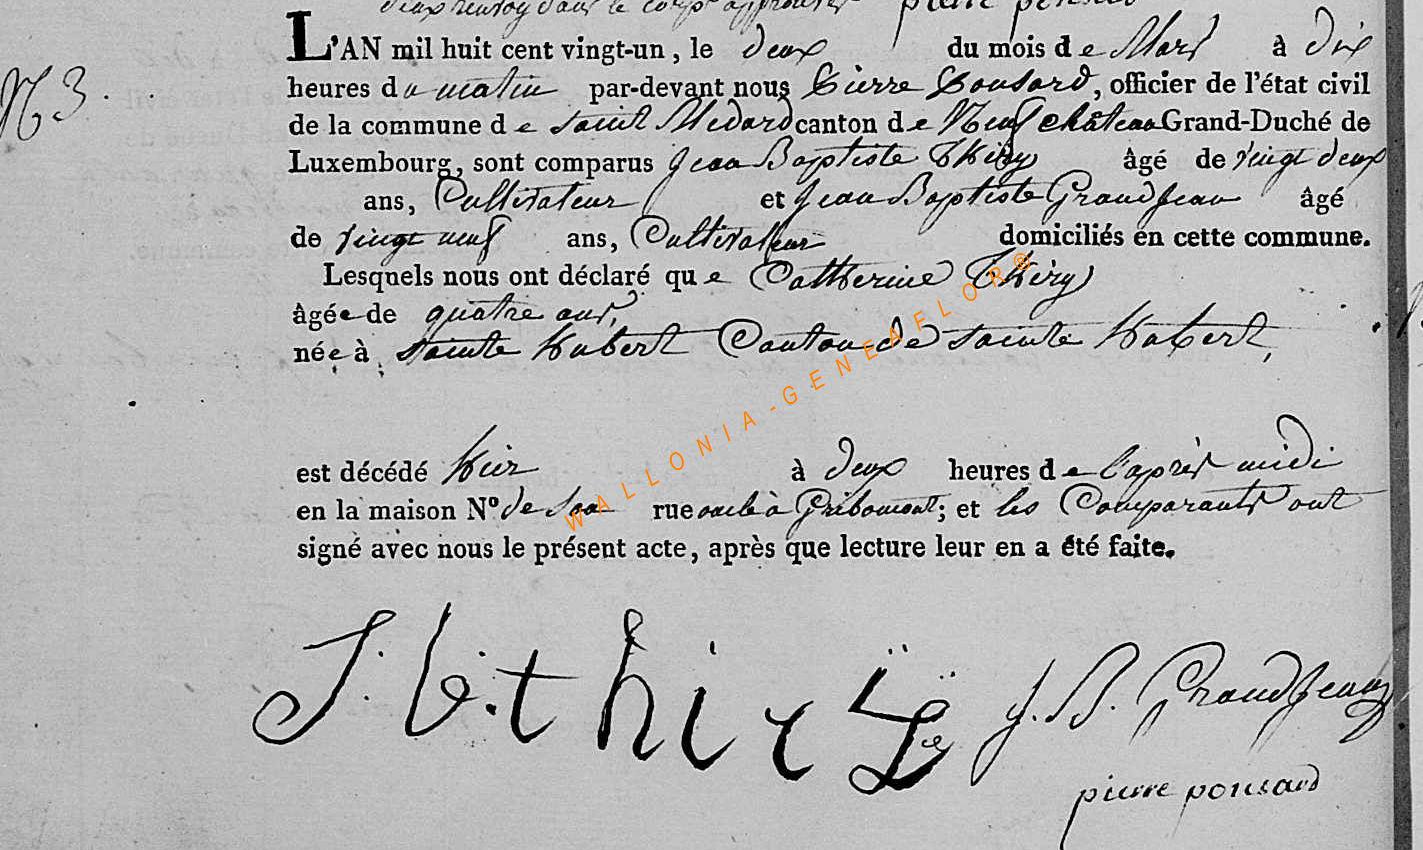 deux renvoy dans le corps approuvés pierre ponsard
N 3.
L'AN mil huit cent vingt-un, le deux du mois de Mars à dix
heures du matin par-devant nous Pierre Ponsard, officier de l'état civil
de la commune de saint Médard canton de Neufchâteau Grand-Duché de
Luxembourg, sont comparus Jean Baptiste Thiry âgé de vingt deux
ans, Cultivateur et Jean Baptiste GrandJean âgé
de vingt neuf ans, Cultivateur domiciliés en cette commune.
Lesquels nous ont déclaré que Catherine Thiry
âgée de quatre ans,
née à sainte Hubert Canton de sainte Hubert,
est décédé hier à deux heures de l'après midi
en la maison N° de son rue oncle à Gribomont; et les Comparants ont
signé avec nous le présent acte, après que lecture leur en a été faite.
J. b. thirÿ J. B. GrandJean
pierre ponsard
WALLONIA-GENEAFLOR®